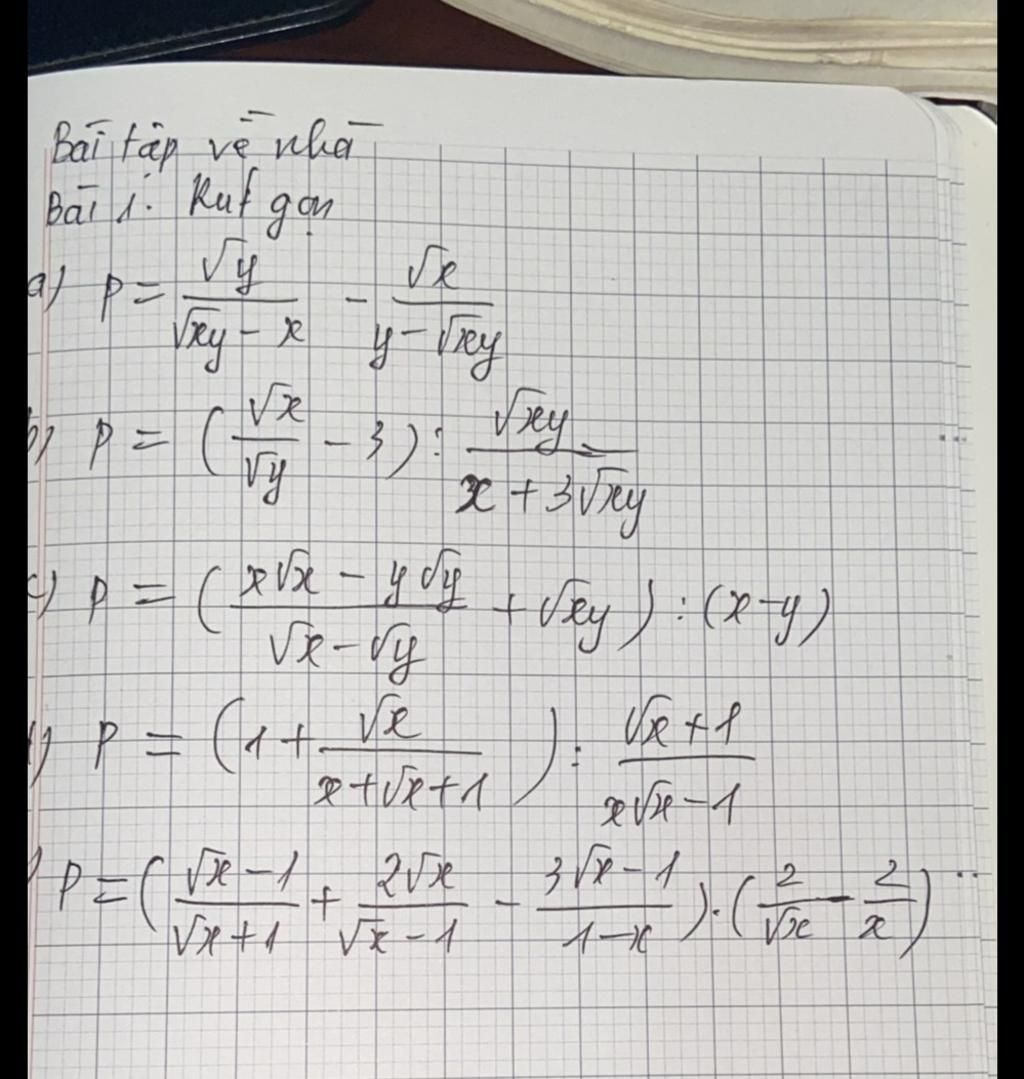 Bài tập về nhà
Bài 1: Rút gọn
a) P = √y/(√xy - x) - √x/(y - √xy)
b) P = (√x/√y - 3) : √xy/(x + 3√xy)
c) P = ((x√x - y√y)/(√x - √y) + √xy) : (x - y)
P = (1 + √x/(x + √x + 1)) : (√x + 1)/(x√x - 1)
P = ((√x - 1)/(√x + 1) + 2√x/(√x - 1) - (3√x - 1)/(1 - x)) · (2/√x - 2/x)